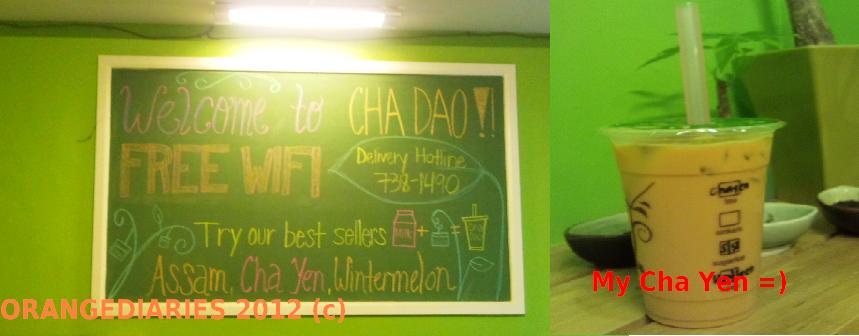 Welcome to CHA DAO!!
FREE WIFI
Delivery Hotline
738-1490
Try our best sellers MILK + =
Assam, Cha Yen, Wintermelon
ORANGEDIARIES 2012 (c)
My Cha Yen =)